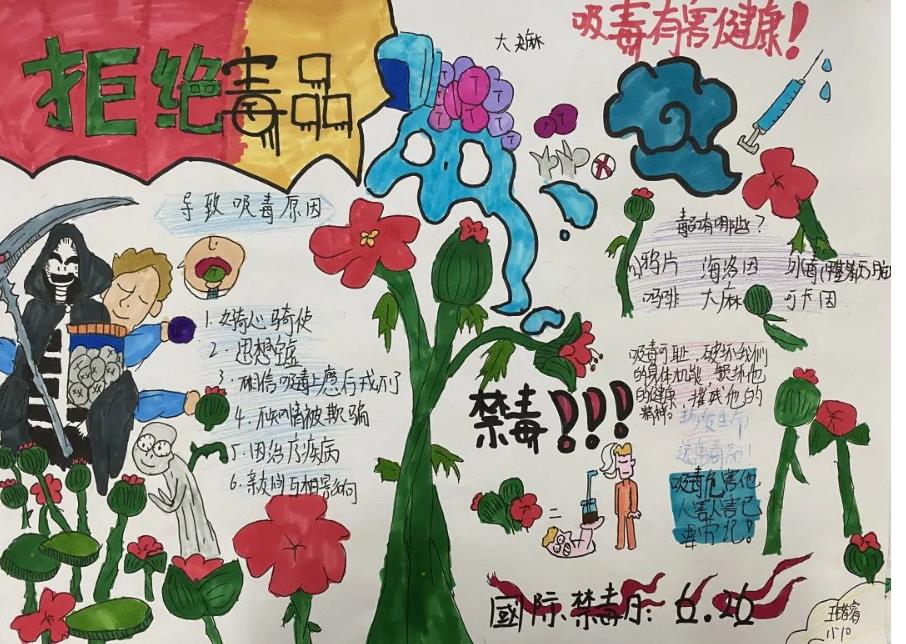 拒绝毒品
大麻
吸毒有害健康!
导致吸毒原因
1.好奇心驱使
2.思想空虚
3.不相信吸毒上瘾后戒不了
4.不知情被欺骗
5.因治疗疾病
6.亲友间互相影响
毒品有哪些?
鸦片 海洛因 冰毒
吗啡 大麻 可卡因
吸毒可耻,破坏我们
的身体机能,毁坏他
的健康,摧残他的
精神。
禁毒!!!
吸毒危害他
人害人害己
国际禁毒日:6.26